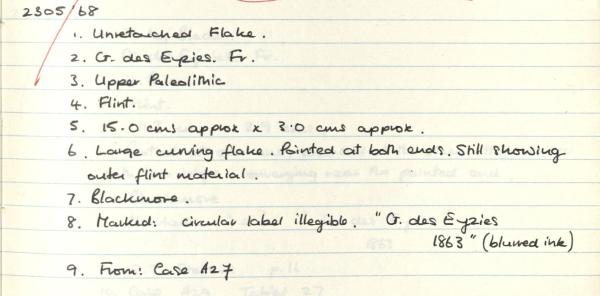 2305/68
1. Unretouched Flake.
2. G. des Eyzies. Fr.
3. Upper Paleolithic
4. Flint.
5. 15.0 cms approx x 3.0 cms approx.
6. Large curving flake. Pointed at both ends. Still showing
outer flint material.
7. Blackmore.
8. Marked: circular label illegible. "G. des Eyzies
1863" (blurred ink)
9. From: Case A27